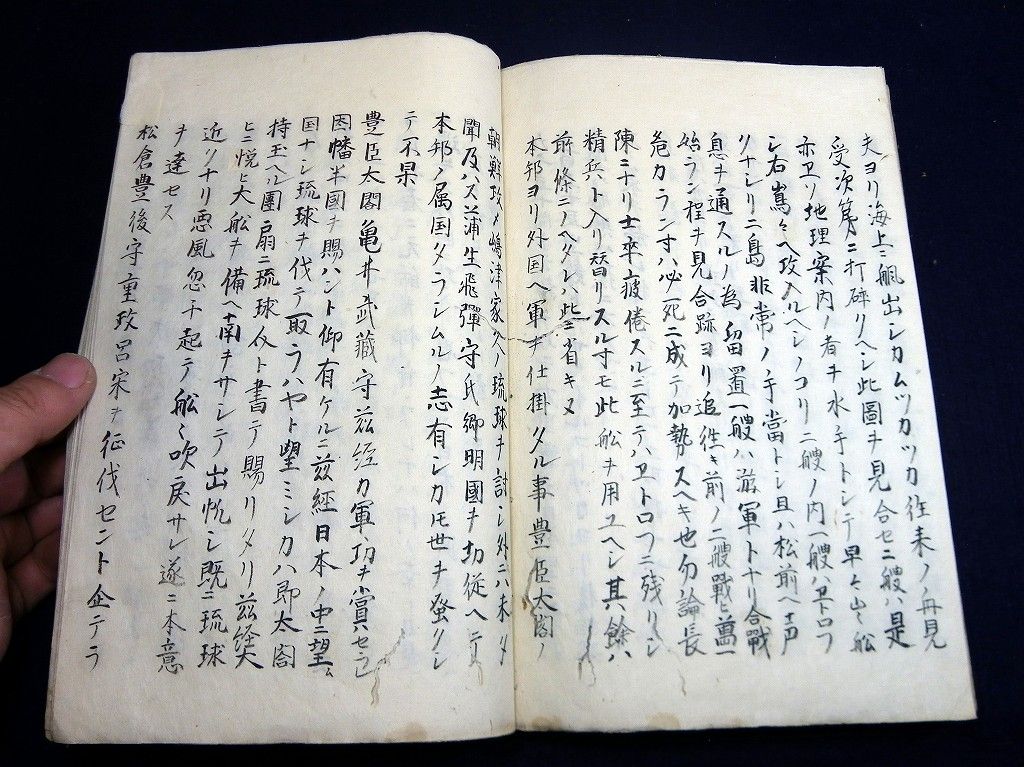 夫ヨリ海上ニ乘出シカムツカツカ往来ノ舟見
受次第ニ打砕クヘシ此圖ヲ見合セ二艘ハ是
亦卫ソ地理案内ノ者ヲ水手トシテ早々出船
シ右嶌々ヘ攻入ルヘシノコリ二艘ノ内一艘ハ卫トロフ
クナシリ二島非常ノ手當トシ且ハ松前ヘ声
息ヲ通スルノ為留置一艘ハ游軍トナリ合戰
始ラン程ヲ見合跡ヨリ追往キ前ノ二艘戰ヒ萬一
危カラン寸ハ必死ニ成テ加勢スヘキ也勿論長
陳ニナリ士卒疲倦スルニ至テハ卫トロフニ残リシ
精兵ト入リ替リスル寸モ此船ヲ用ユヘシ其餘ハ
前條ニノヘタレハ此ニ省キヌ
本邦ヨリ外国ヘ軍ヲ仕掛タル事豊臣太閤ノ
朝鮮攻メ嶋津家久ノ琉球ヲ討シ外ニハ未タ
聞及ハズ蒲生飛彈守氏郷明國ヲ切従ヘテ
本邦ノ属国タラシムルノ志有シカ𪜈世ヲ蚤クシ
テ不果
豊臣太閤亀井武蔵守茲経カ軍功ヲ賞セラレ
因幡半國ヲ賜ハント仰有ケルニ茲經日本ノ中ニ望ム
国ナシ琉球ヲ伐テ取ラハヤト望ミシカハ即太閤
持玉ヘル團扇ニ琉球守ト書テ賜リタリ茲経大
ヒニ悦ヒ大船ヲ備ヘ南ヲサシテ出帆シ既ニ琉球
近クナリ悪風忽チ起テ船々吹戻サレ遂ニ本意
ヲ達セス
松倉豊後守重政呂宋ヲ征伐セント企テラ